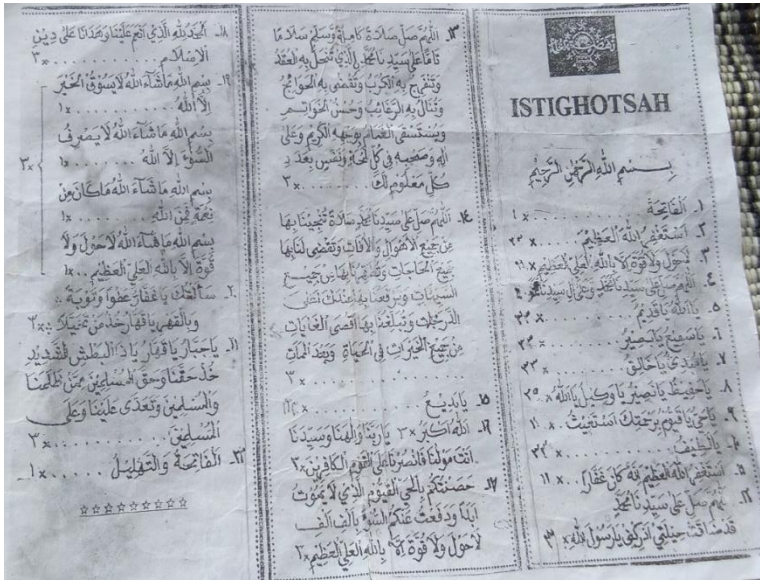 ISTIGHOTSAH
بسم الله الرحمن الرحيم
١. الفاتحة ........ ×١
٢. استغفر الله العظيم ......
٣. لاحول ولا قوة الا بالله العلي العظيم
٤. اللهم صل على سيدنا محمد وعلى ال سيدنا محمد
٥. ياالله ياقديم ......
٦. ياسميع يابصير ......
٧. يامبدئ ياخالق ...... ×٣٣
٨. ياحفيظ يانصير ياوكيل ياالله
٩. ياحي ياقيوم برحمتك استغيث
يالطيف ......
استغفر الله العظيم انه كان غفارا .. ×١١
اللهم صل على سيدنا محمد
قد ضاقت حيلتي ادركني يارسول الله
١٣. اللهم صل صلاة كاملة وسلم سلاما
تاما على سيدنا محمد الذي تنحل به العقد
وتنفرج به الكرب وتقضى به الحوائج
وتنال به الرغائب وحسن الخواتم
ويستسقى الغمام بوجهه الكريم وعلى
اله وصحبه في كل لمحة ونفس بعدد
كل معلوم لك ...... ×٣
١٤. اللهم صل على سيدنا محمد صلاة تنجينا بها
من جميع الاهوال والافات وتقضى لنا بها
جميع الحاجات وتطهرنا بها من جميع
السيئات وترفعنا بها عندك اعلى
الدرجات وتبلغنا بها اقصى الغايات
من جميع الخيرات في الحياة وبعد الممات
...... ×٣
١٥. يابديع ......
١٦. الله اكبر ×٣ ياربنا والهنا وسيدنا
انت مولنا فانصرنا على القوم الكافرين ×٣
١٧. حصنتكم بالحي القيوم الذي لا يموت
ابدا ودفعت عنكم السوء بالف الف
لاحول ولا قوة الا بالله العلي العظيم ×٣
١٨. الحمد لله الذي انعم علينا وهدانا على دين
الاسلام ...... ×٣
١٩. بسم الله ماشآء الله لايسوق الخير
الا الله ...... ×١
بسم الله ماشآء الله لايصرف
السوء الا الله ...... ×١
بسم الله ماشآء الله ماكان من
نعمة فمن الله ...... ×١
بسم الله ماشآء الله لاحول ولا
قوة الا بالله العلي العظيم .. ×١
×٣
سألتك ياغفار عفوا وتوبة
وبالقهر ياقهار خذ من تحيلا ×٣
ياجبار ياقهار ياذا البطش الشديد
خذ حقنا وحق المسلمين ممن ظلمنا
والمسلمين وتعدى علينا وعلى
المسلمين ...... ×٣
الفاتحة والتهليل ...... ×١
☆☆☆☆☆☆☆☆☆